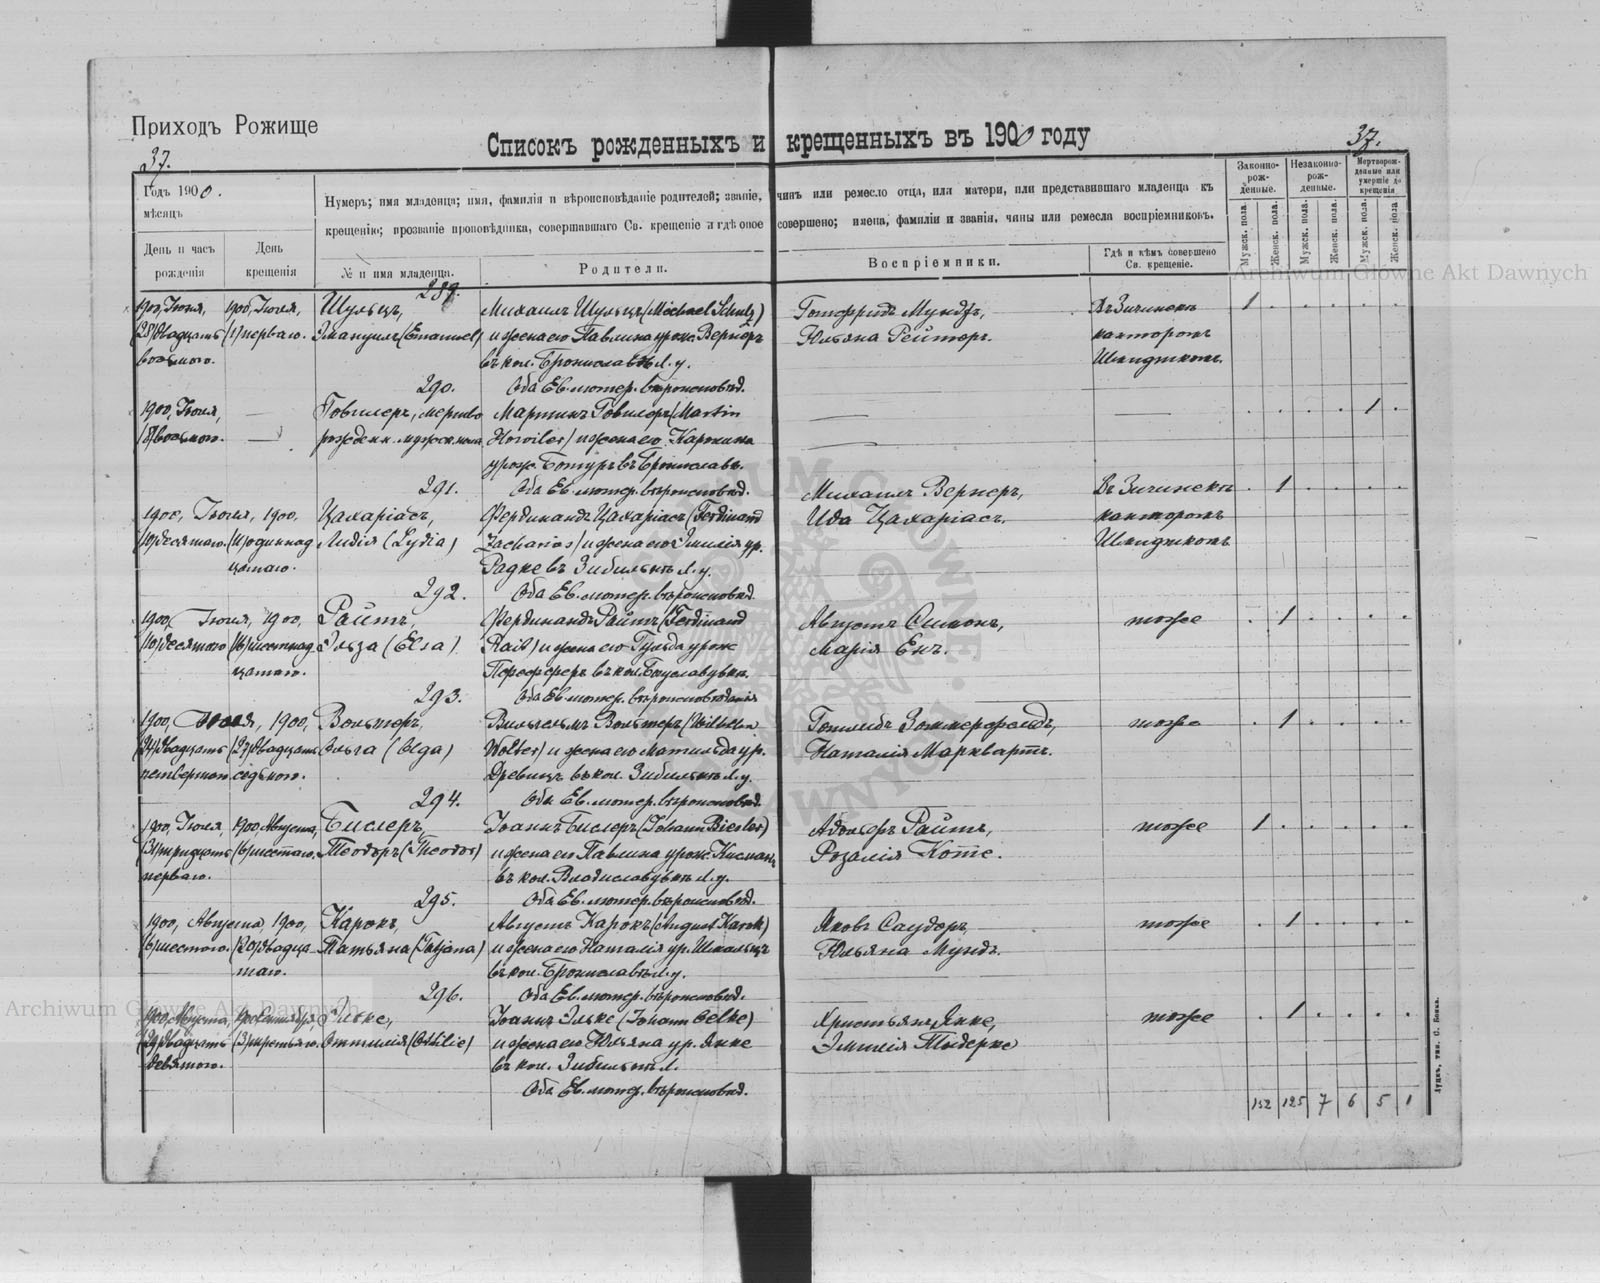 Приходъ Рожище
Списокъ рожденныхъ и крещенныхъ въ 1900 году
37.
37.
Годъ 1900.
мѣсяцъ
День и часъ рожденія
День крещенія
Нумеръ; имя младенца; имя, фамилія и вѣроисповѣданіе родителей; званіе, чинъ или ремесло отца, или матери, или представившаго младенца къ
крещенію; прозваніе проповѣдника, совершавшаго Св. крещеніе и гдѣ оное совершено; имена, фамиліи и званія, чины или ремесла воспріемниковъ.
№ и имя младенца.
Родители.
Воспріемники.
Гдѣ и кѣмъ совершено Св. крещеніе.
Законно-рож-денные.
Незаконно-рож-денные.
Мертворож-денные или умершіе до крещенія
Мужск. пола.
Женск. пола.
Мужск. пола.
Женск. пола.
Мужск. пола.
Женск. пола.
Archiwum Główne Akt Dawnych
289.
1900, Іюня, 1900, Іюля, Шульцъ, Михаилъ Шульцъ (Michael Schulz) Готфридъ Мундъ, Въ Зичинскъ 1
(28) двадцать (1) перваго. Эмануилъ (Emanuel) и жена его Павлина урож. Вернеръ Юльяна Рейтеръ. канторомъ
восьмого. въ кол. Брониславкѣ Л. у. Шмидткомъ.
290. Оба Ев. лютер. вѣроисповѣд.
1900, Іюля, — Говилеръ, мертво Мартинъ Говилеръ (Martin — 1
(8) восьмого. — рожденн. мужск. пола Howiler) и жена его Каролина —
урож. Ботуръ въ Брониславк.
291. Оба Ев. лютер. вѣроисповѣд. Михаилъ Вернеръ, Въ Зичинскъ 1
1900, Іюля, 1900, Цахаріасъ, Фердинандъ Цахаріасъ (Ferdinand Ида Цахаріасъ. канторомъ
(10) десятаго. (11) одиннад Лидія (Lydia) Zacharias) и жена его Эмилія ур. Шмидткомъ
цатаго. Радке въ Зибилькѣ Л. у.
292. Оба Ев. лютер. вѣроисповѣд.
1900, Іюля, 1900, Райтъ, Фердинандъ Райтъ (Ferdinand Августъ Симонъ, тоже 1
(10) десятого (16) шестнад Эльза (Elsa) Rait) и жена его Гульда урож Марія Енъ.
цатаго. въ кол. Богуславувкѣ
293. Оба Ев. лютер. вѣроисповѣданія
1900, Іюля, 1900, Вольтеръ, Вильгельмъ Вольтеръ (Wilhelm Готлибъ Зоммерфельдъ, тоже 1
(24) двадцать (27) двадцать Ольга (Olga) Wolter) и жена его Матильда ур. Наталія Марквартъ.
четвертого седьмого. Древицъ въ кол. Зибилькѣ Л. у.
294. Оба Ев. лютер. вѣроисповѣд.
1900, Іюля, 1900 Августа, Бислеръ, Іоанъ Бислеръ (Johann Biesler) Адольфъ Райтъ, тоже 1
(31) тридцать (6) шестого. Теодоръ (Theodor) и жена его Павлина урож. Кисманъ Розалія Котте.
перваго. въ кол. Владиславувкѣ Л. у.
295. Оба Ев. лютер. вѣроисповѣд.
1900, Августа, 1900, Карокъ, Августъ Карокъ (August Karok) Яковъ Саудеръ, тоже 1
(6) шестого. (20) двадца Татьяна (Tatjana) и жена его Наталія ур. Шмальцъ Юльяна Мундъ.
таго. въ кол. Брониславкѣ Л. у.
296. Оба Ев. лютер. вѣроисповѣд.
Archiwum Główne Akt Dawnych
1900, Августа, 1900 Сентября Эльке, Іоанъ Эльке (Johann Oelke) Христьянъ Янке, тоже 1
(29) двадцать (3) третьяго. Оттилія (Ottilie) и жена его Юльяна ур. Янке Эмилія Тидерке
девятого. въ кол. Зибилькѣ Л.
Оба Ев. лютер. вѣроисповѣд.
152 125 7 6 5 1
Луцкъ, тип. С. Бокка.